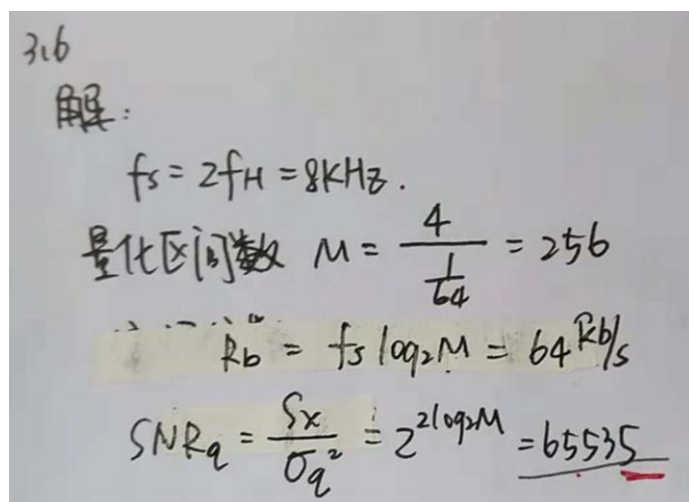 3.6
解:
fs = 2fH = 8KHz.
量化区间数 M = 4 / (1/64) = 256
Rb = fs log₂M = 64 kb/s
SNRq = Sx / σq² = 2^(2log₂M) = 65535